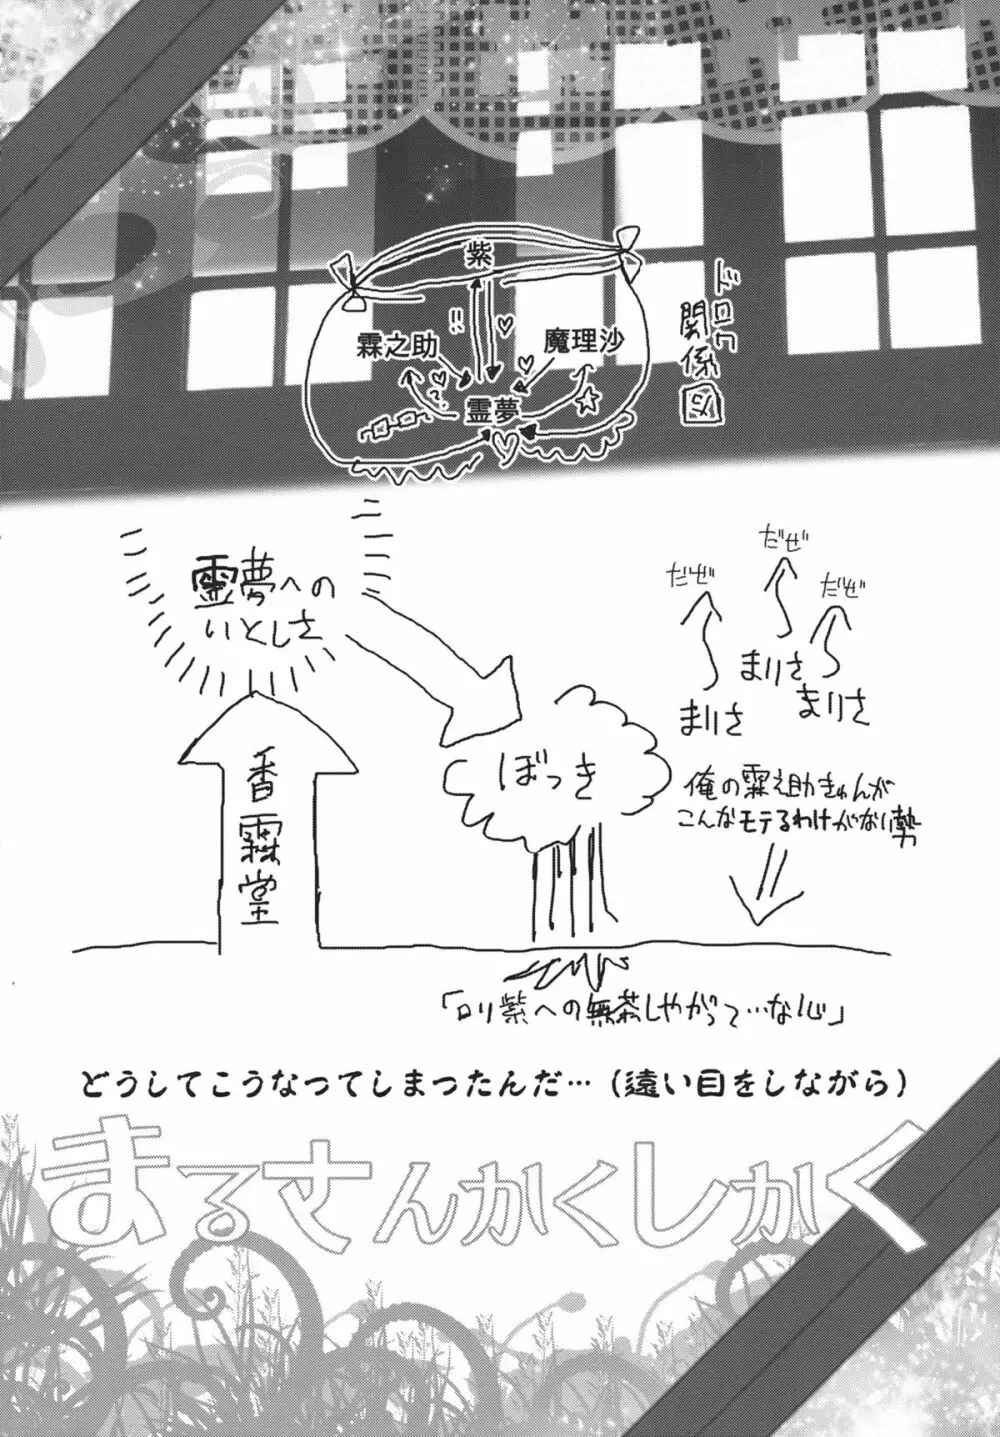 ドロワ
関係図
紫
!!
霖之助
魔理沙
?
霊夢
霊夢への
いとしさ
だぜ
だぜ
だぜ
まりさ
まりさ
まりさ
香霖堂
ぼっき
俺の霖之助きゅんが
こんなモテるわけがない勢
「ロリ紫への無茶しやがって…な心」
どうしてこうなってしまったんだ…(遠い目をしながら)
まるさんかくしかく